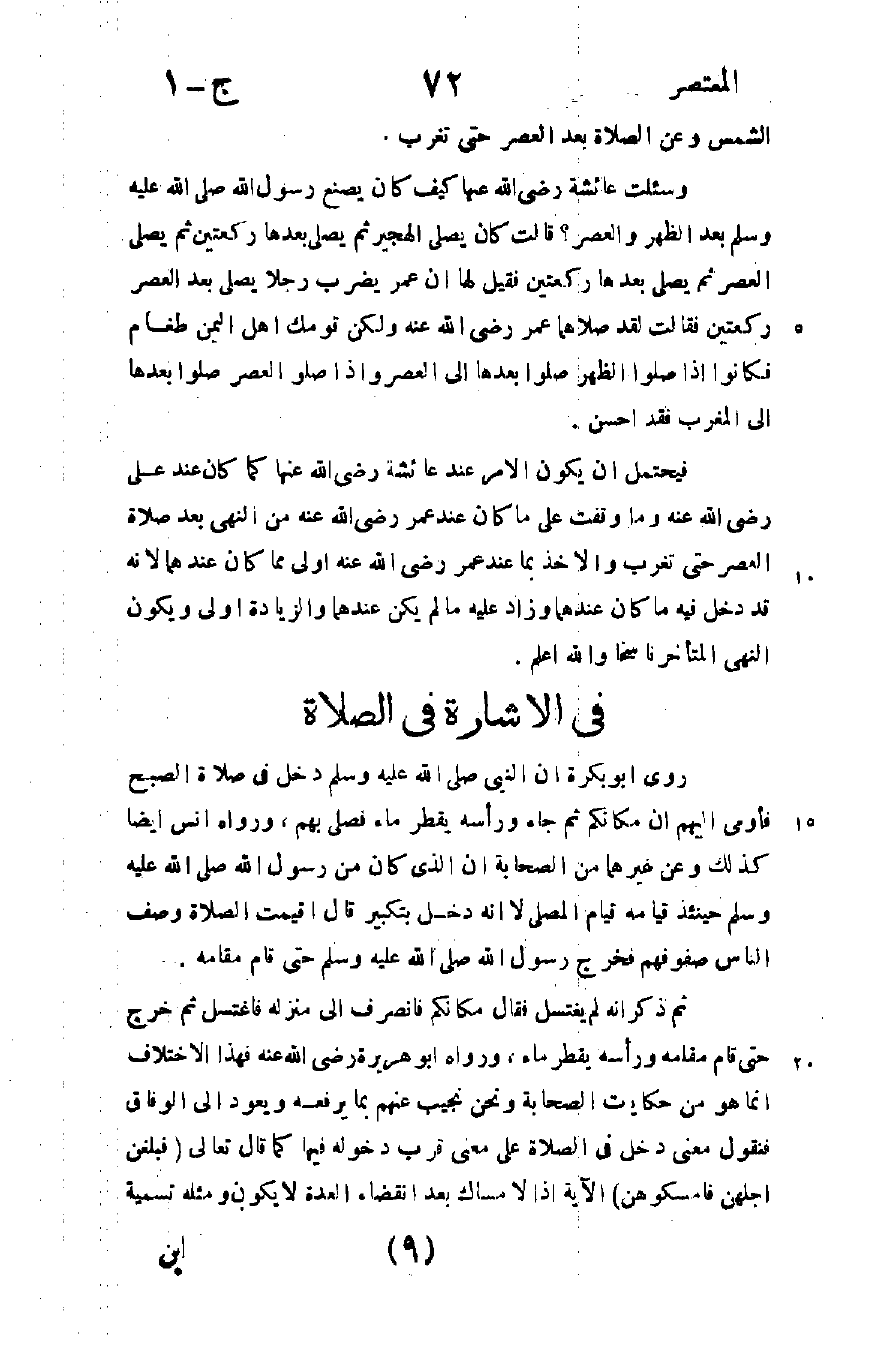 المعتصر ٧٢ ج – ١
الشمس وعن الصلاة بعد العصر حتى تغرب .
وسئلت عائشة رضى الله عنها كيف كان يصنع رسول الله صلى الله عليه
وسلم بعد الظهر والعصر؟ قالت كان يصلى الهجير ثم يصلى بعدها ركعتين ثم يصلى
العصر ثم يصلى بعدها ركعتين فقيل لها ان عمر يضرب رجلا يصلى بعد العصر
ركعتين فقالت لقد صلاهما عمر رضى الله عنه ولكن قومك اهل اليمن طغام ٥
فكانوا اذا صلوا الظهر صلوا بعدها الى العصر واذا صلو العصر صلوا بعدها
الى المغرب فقد احسن .
فيحتمل ان يكون الامر عند عائشة رضى الله عنها كما كان عند على
رضى الله عنه وما وقفت على ما كان عند عمر رضى الله عنه من النهى بعد صلاة
العصر حتى تغرب والاخذ بما عند عمر رضى الله عنه اولى مما كان عندهما لانه ١٠
قد دخل فيه ما كان عندهما وزاد عليه ما لم يكن عندهما والزيادة اولى ويكون
النهى المتأخر ناسخا والله اعلم .
فى الاشارة فى الصلاة
روى ابوبكرة ان النبى صلى الله عليه وسلم دخل فى صلاة الصبح
فأومى اليهم ان مكانكم ثم جاء ورأسه يقطر ماء فصلى بهم ، ورواه انس ايضا ١٥
كذلك وعن غيرهما من الصحابة ان الذى كان من رسول الله صلى الله عليه
وسلم حينئذ قيامه قيام المصلى لا انه دخل بتكبير قال اقيمت الصلاة وصف
الناس صفوفهم فخرج رسول الله صلى الله عليه وسلم حتى قام مقامه .
ثم ذكر انه لم يغتسل فقال مكانكم فانصرف الى منزله فاغتسل ثم خرج
حتى قام مقامه ورأسه يقطر ماء ، ورواه ابو هريرة رضى الله عنه فهذا الاختلاف ٢٠
انما هو من حكايات الصحابة ونحن نجيب عنهم بما يرفعه ويعود الى الوفاق
فنقول معنى دخل فى الصلاة على معنى قرب دخوله فيها كما قال تعالى ( فبلغن
اجلهن فامسكوهن) الآية اذا لامساك بعد انقضاء العدة لا يكون ومثله تسمية
(٩) ابن